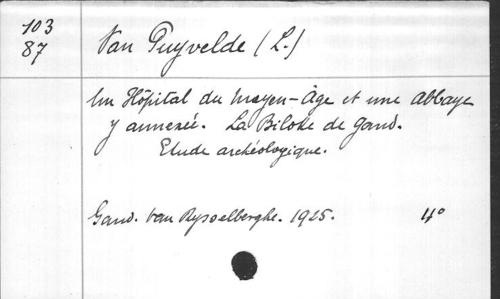 103
87
Van Puyvelde (L.)
Un Hôpital du Moyen-Âge et une Abbaye
y annexée. La Biloke de Gand.
Etude archéologique.
Gand. Van Rysselberghe. 1925. 4°